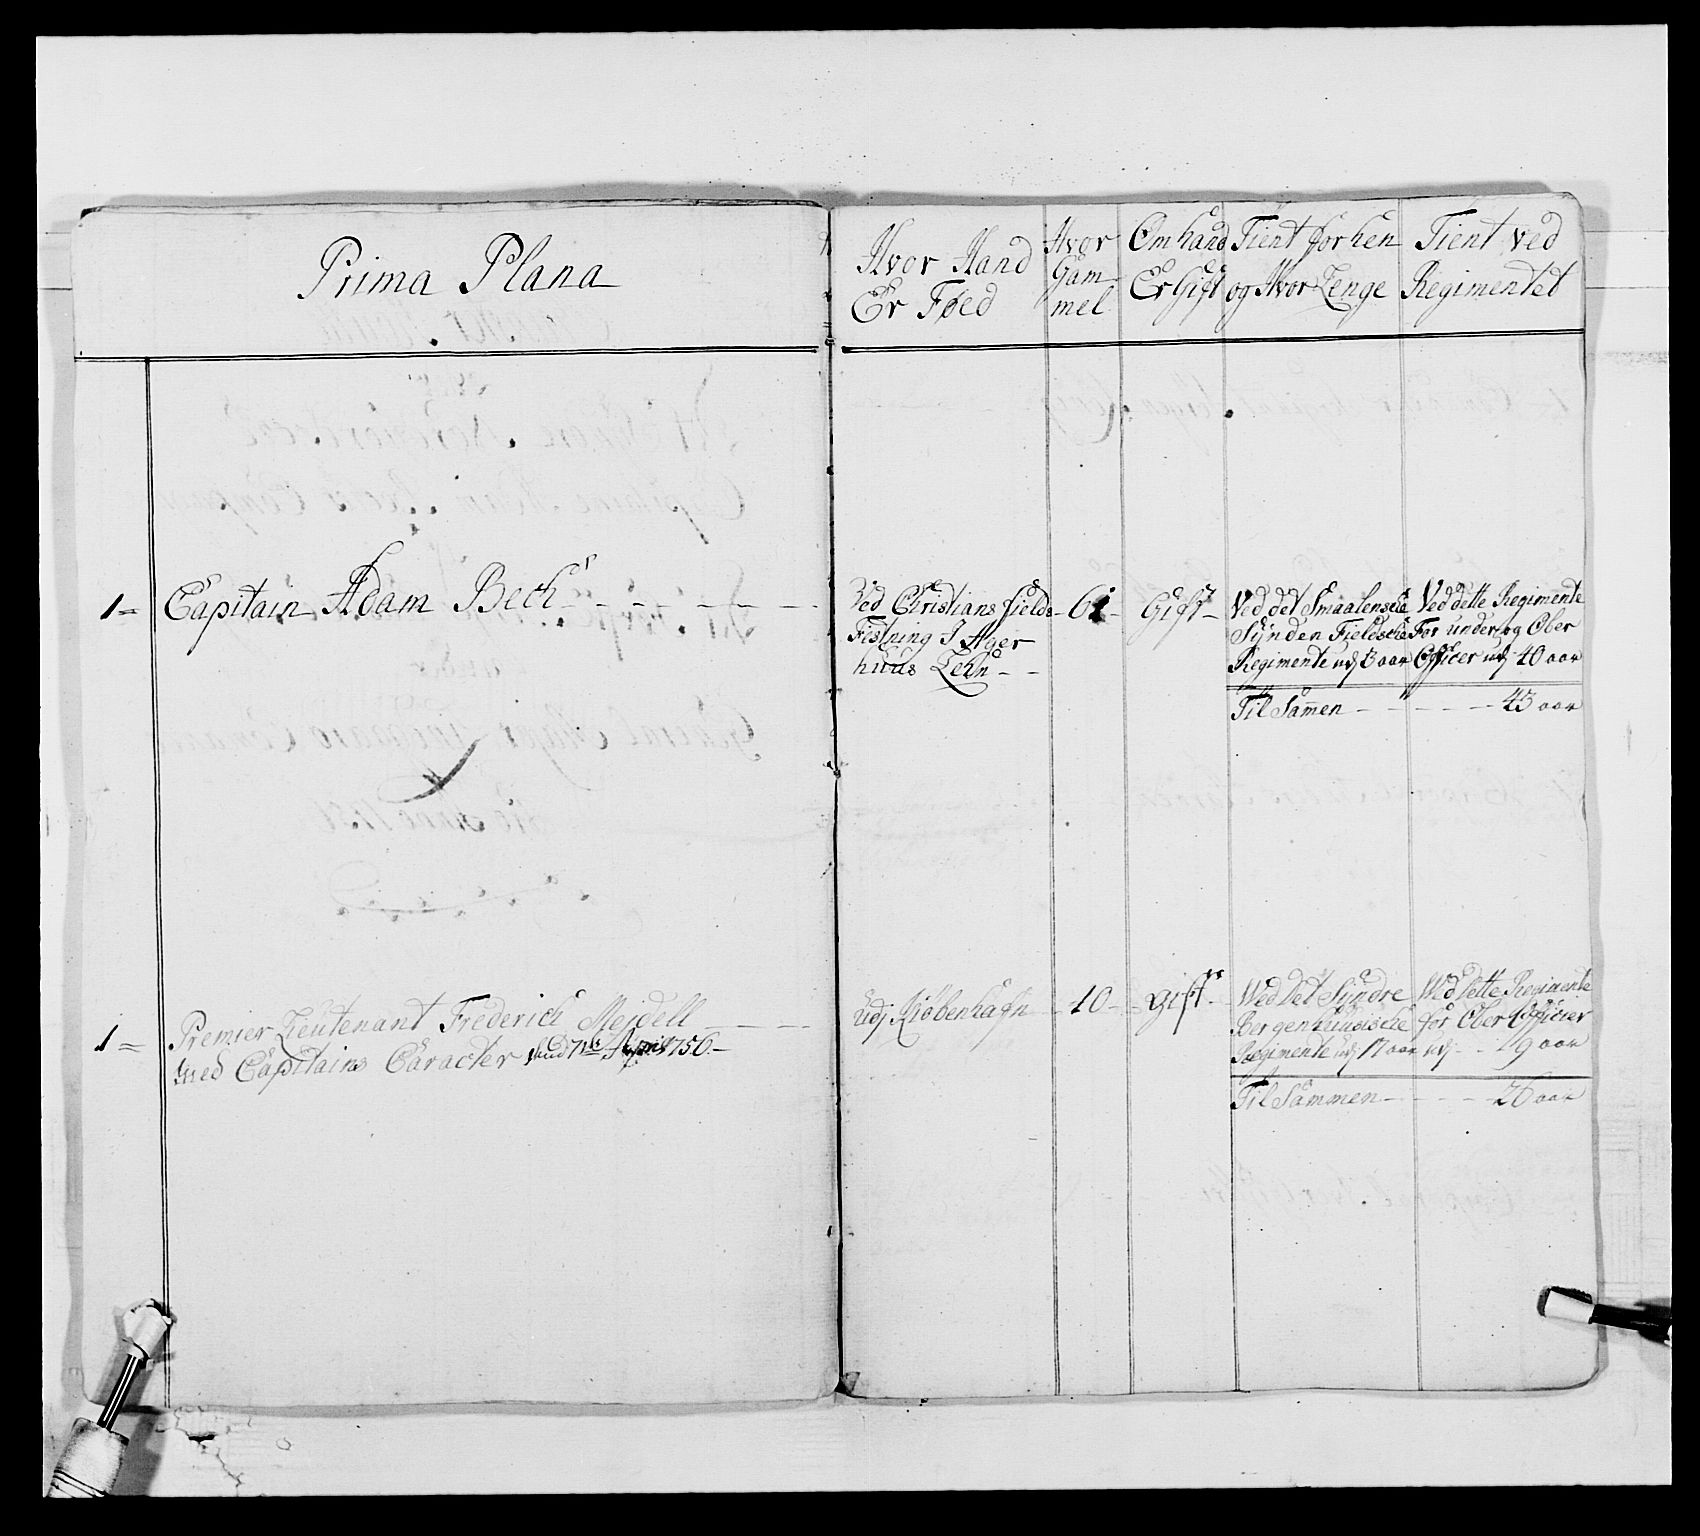 Prima Plana
Hvor Hand
Er Føed
Hvor
Gam-
mel
Om hand
Er Gift
Tient forhen
og Hvor Lenge
Tient ved
Regimentet
1= Capitain Adam Bech
Ved Christiansfields
Festning I Ager
huus Lehn
61
Gift
Ved det Smaalensche
Synden Fieldsche
Regimente udj 3 aar
Ved dette Regimente
For under og Ober
Officer udj 40 aar
Til Samen 43 aar
1= Premier Leutenant Frederich Mejdell
med Capitains Caracter 1756
Udj Kiøbenhafn
40
Gift
Ved Det Syndre
Bergenhuusische
Regimente udj 17 aar
Ved dette Regimente
for Ober Officier
udj 9 aar
Til Sammen 26 aar